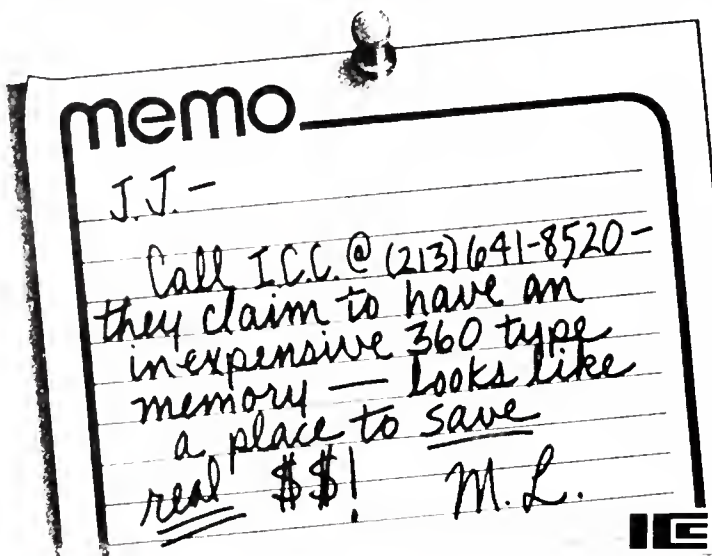 memo
J.J. –
Call I.C.C. @ (213) 641-8520 –
they claim to have an
inexpensive 360 type
memory — looks like
a place to save
real $$! M.L.
ICC